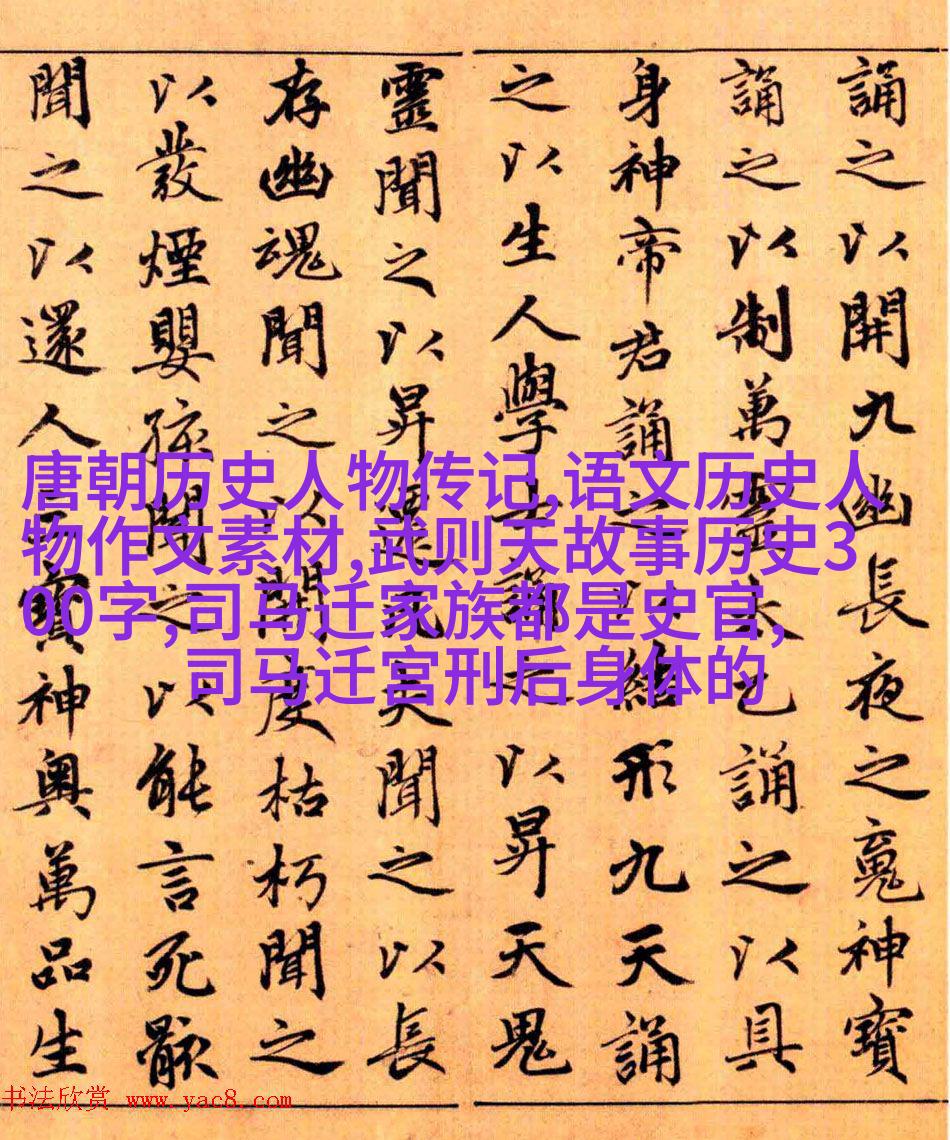 誦之以開九幽長夜之䰟神寶
誦之以制萬太乙誦之以具
身神帝君誦之以結形九天誦
之以生人學士誦之以昇天鬼
靈聞之以昇夫聞之以長
存幽魂聞之以開度枯朽聞之
以發煙嬰孩聞之以能言死骸
聞之以還人寶神奧萬品生
唐朝历史人物传记,语文历史人
物作文素材,武则天故事历史3
00字,司马迁家族都是史官,
司马迁宫刑后身体的
书法欣赏 www.yac8.com